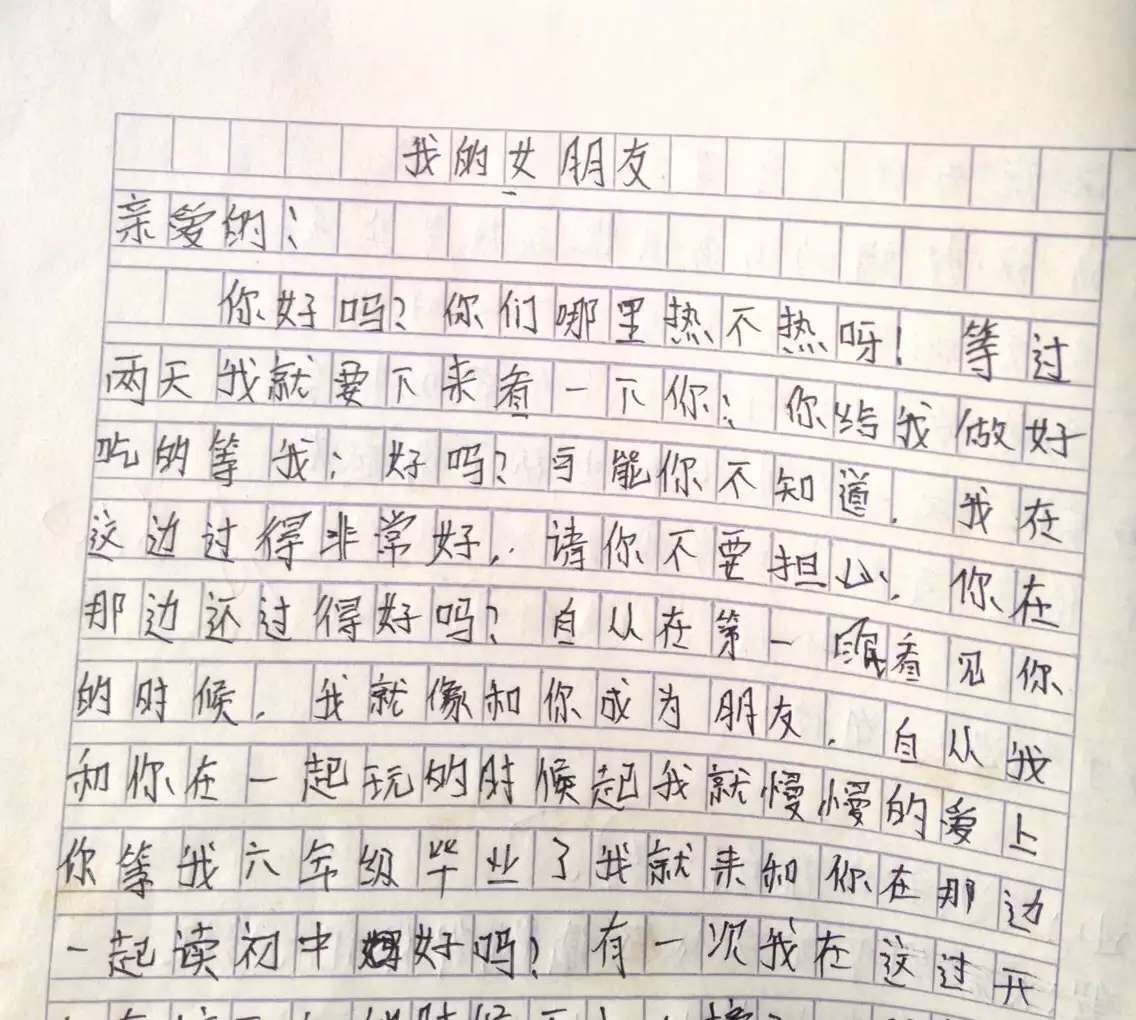 我的女朋友
亲爱的：
你好吗？你们哪里热不热呀！等过
两天我就要下来看一下你；你给我做好
吃的等我；好吗？可能你不知道，我在
这边过得非常好，请你不要担心，你在
那边还过得好吗？自从在第一眼看见你
的时候，我就像和你成为朋友，自从我
和你在一起玩的时候起我就慢慢的爱上
你等我六年级毕业了我就来和你在那边
一起读初中好吗？有一次我在这过开